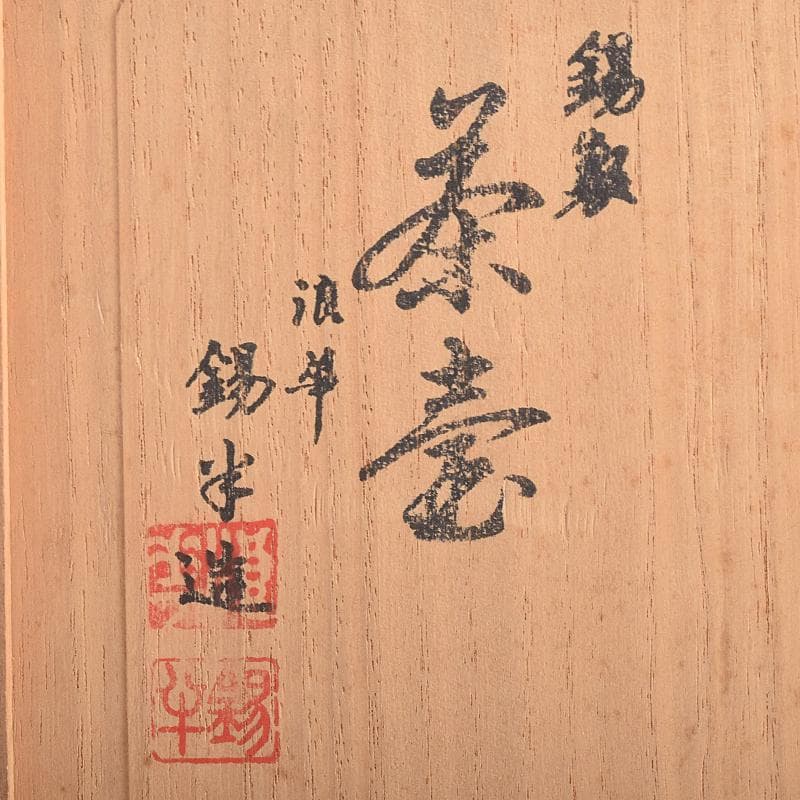 錫製
茶壷
浪華
錫半造
錫半